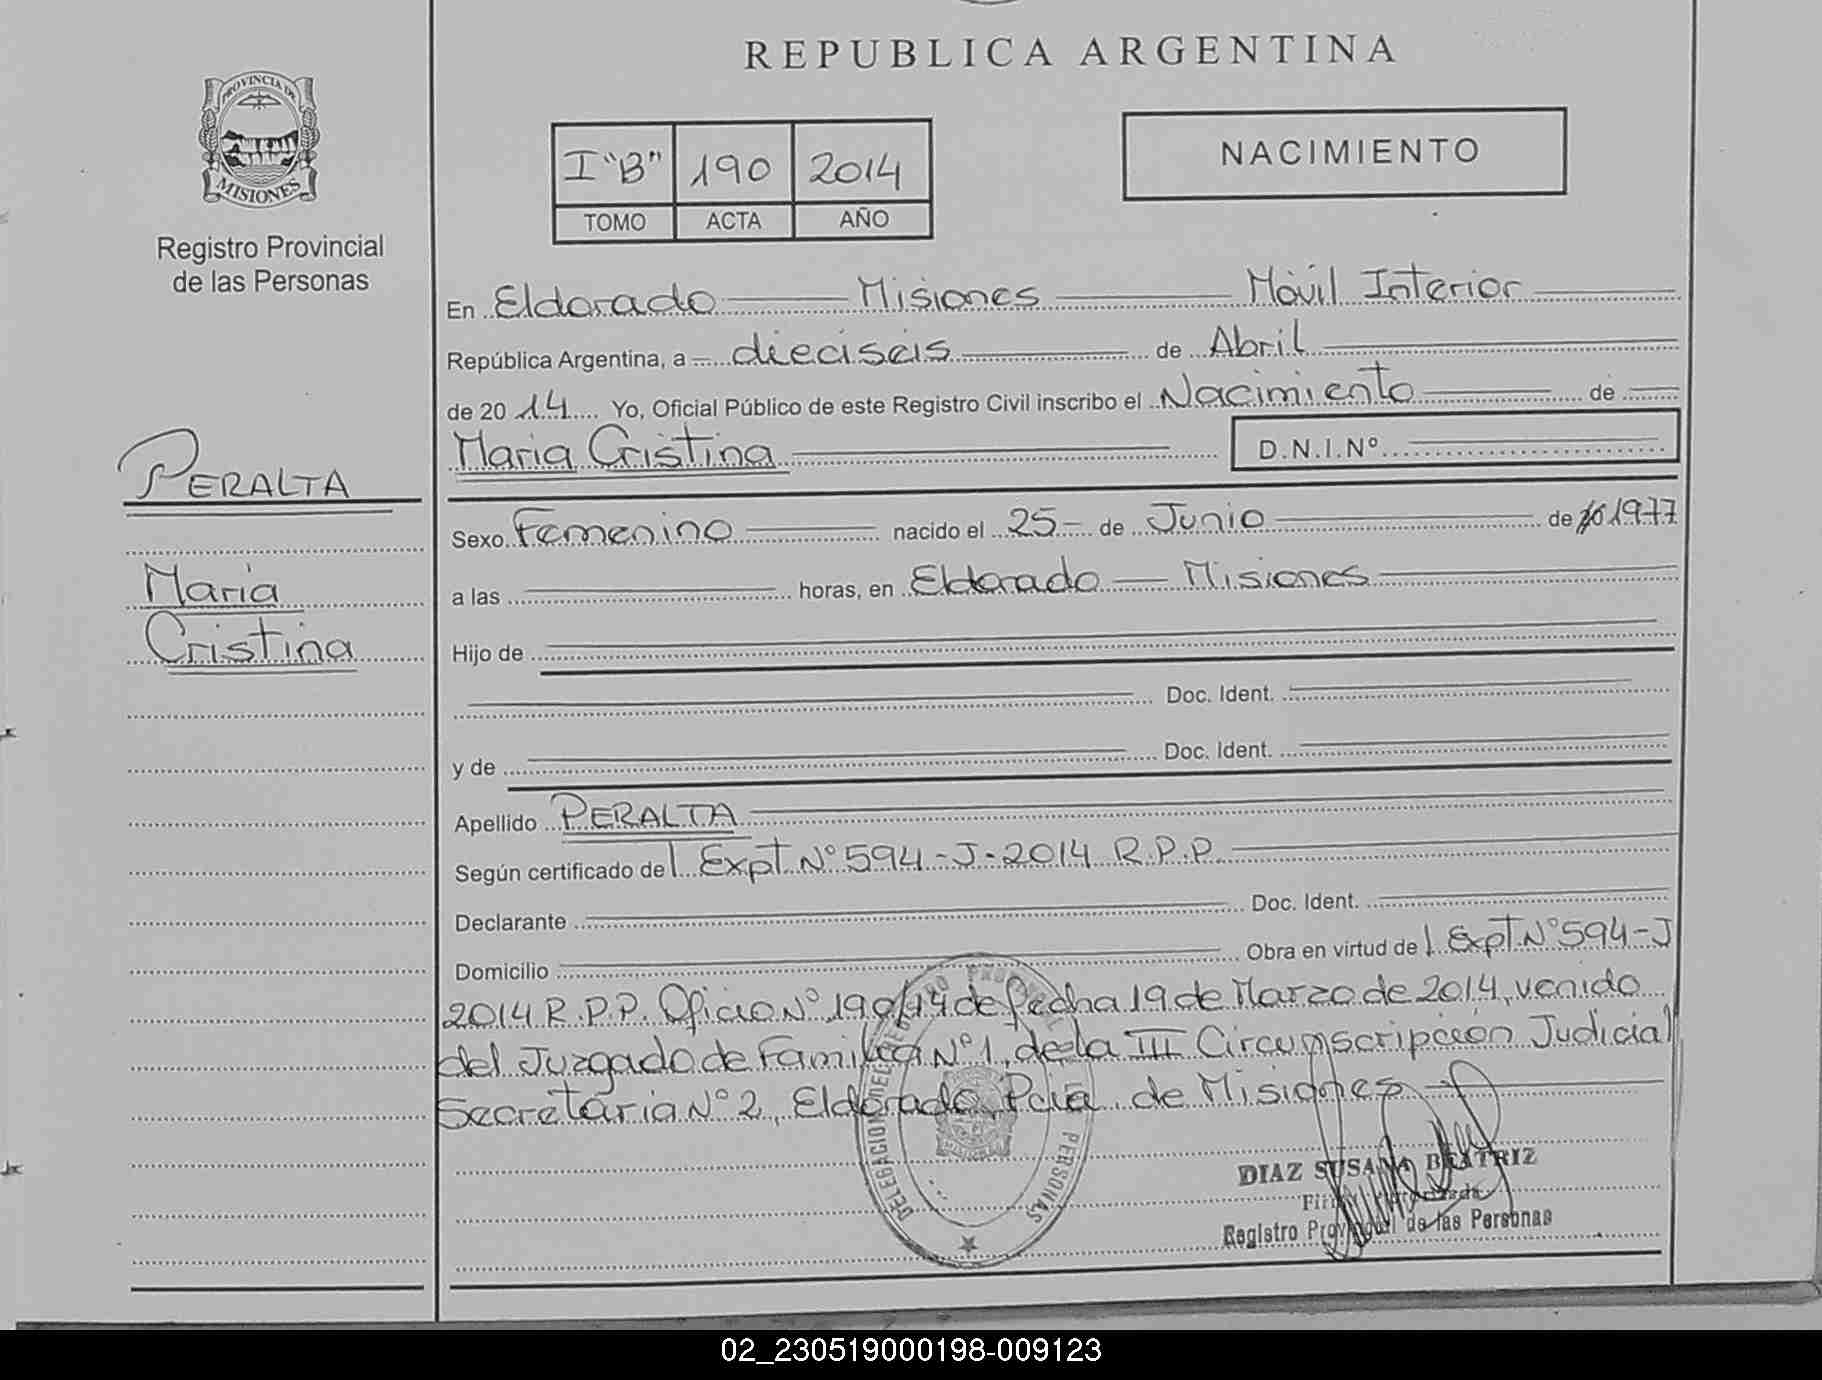 REPUBLICA ARGENTINA
PROVINCIA DE
MISIONES
Registro Provincial
de las Personas
I "B" 190 2014
TOMO ACTA AÑO
NACIMIENTO
En Eldorado Misiones Móvil Interior
República Argentina, a dieciseis de Abril
de 2014 Yo, Oficial Público de este Registro Civil inscribo el Nacimiento de
Maria Cristina D.N.I.Nº
PERALTA
Maria
Cristina
Sexo Femenino nacido el 25 de Junio de 1977
a las horas, en Eldorado Misiones
Hijo de
Doc. Ident.
y de Doc. Ident.
Apellido PERALTA
Según certificado del Expt Nº 594-J-2014 R.P.P.
Declarante Doc. Ident.
Domicilio Obra en virtud del Expt Nº 594-J
2014 R.P.P. Oficio Nº 190/14 de fecha 19 de Marzo de 2014, venido
del Juzgado de Familia Nº 1, de la III Circumscripción Judicial
Secretaria Nº 2, Eldorado, Pcia. de Misiones
DELEGACION DEL REGISTRO PROVINCIAL PERSONAS
DIAZ SUSANA BEATRIZ
Registro Provincial de las Personas
02_230519000198-009123